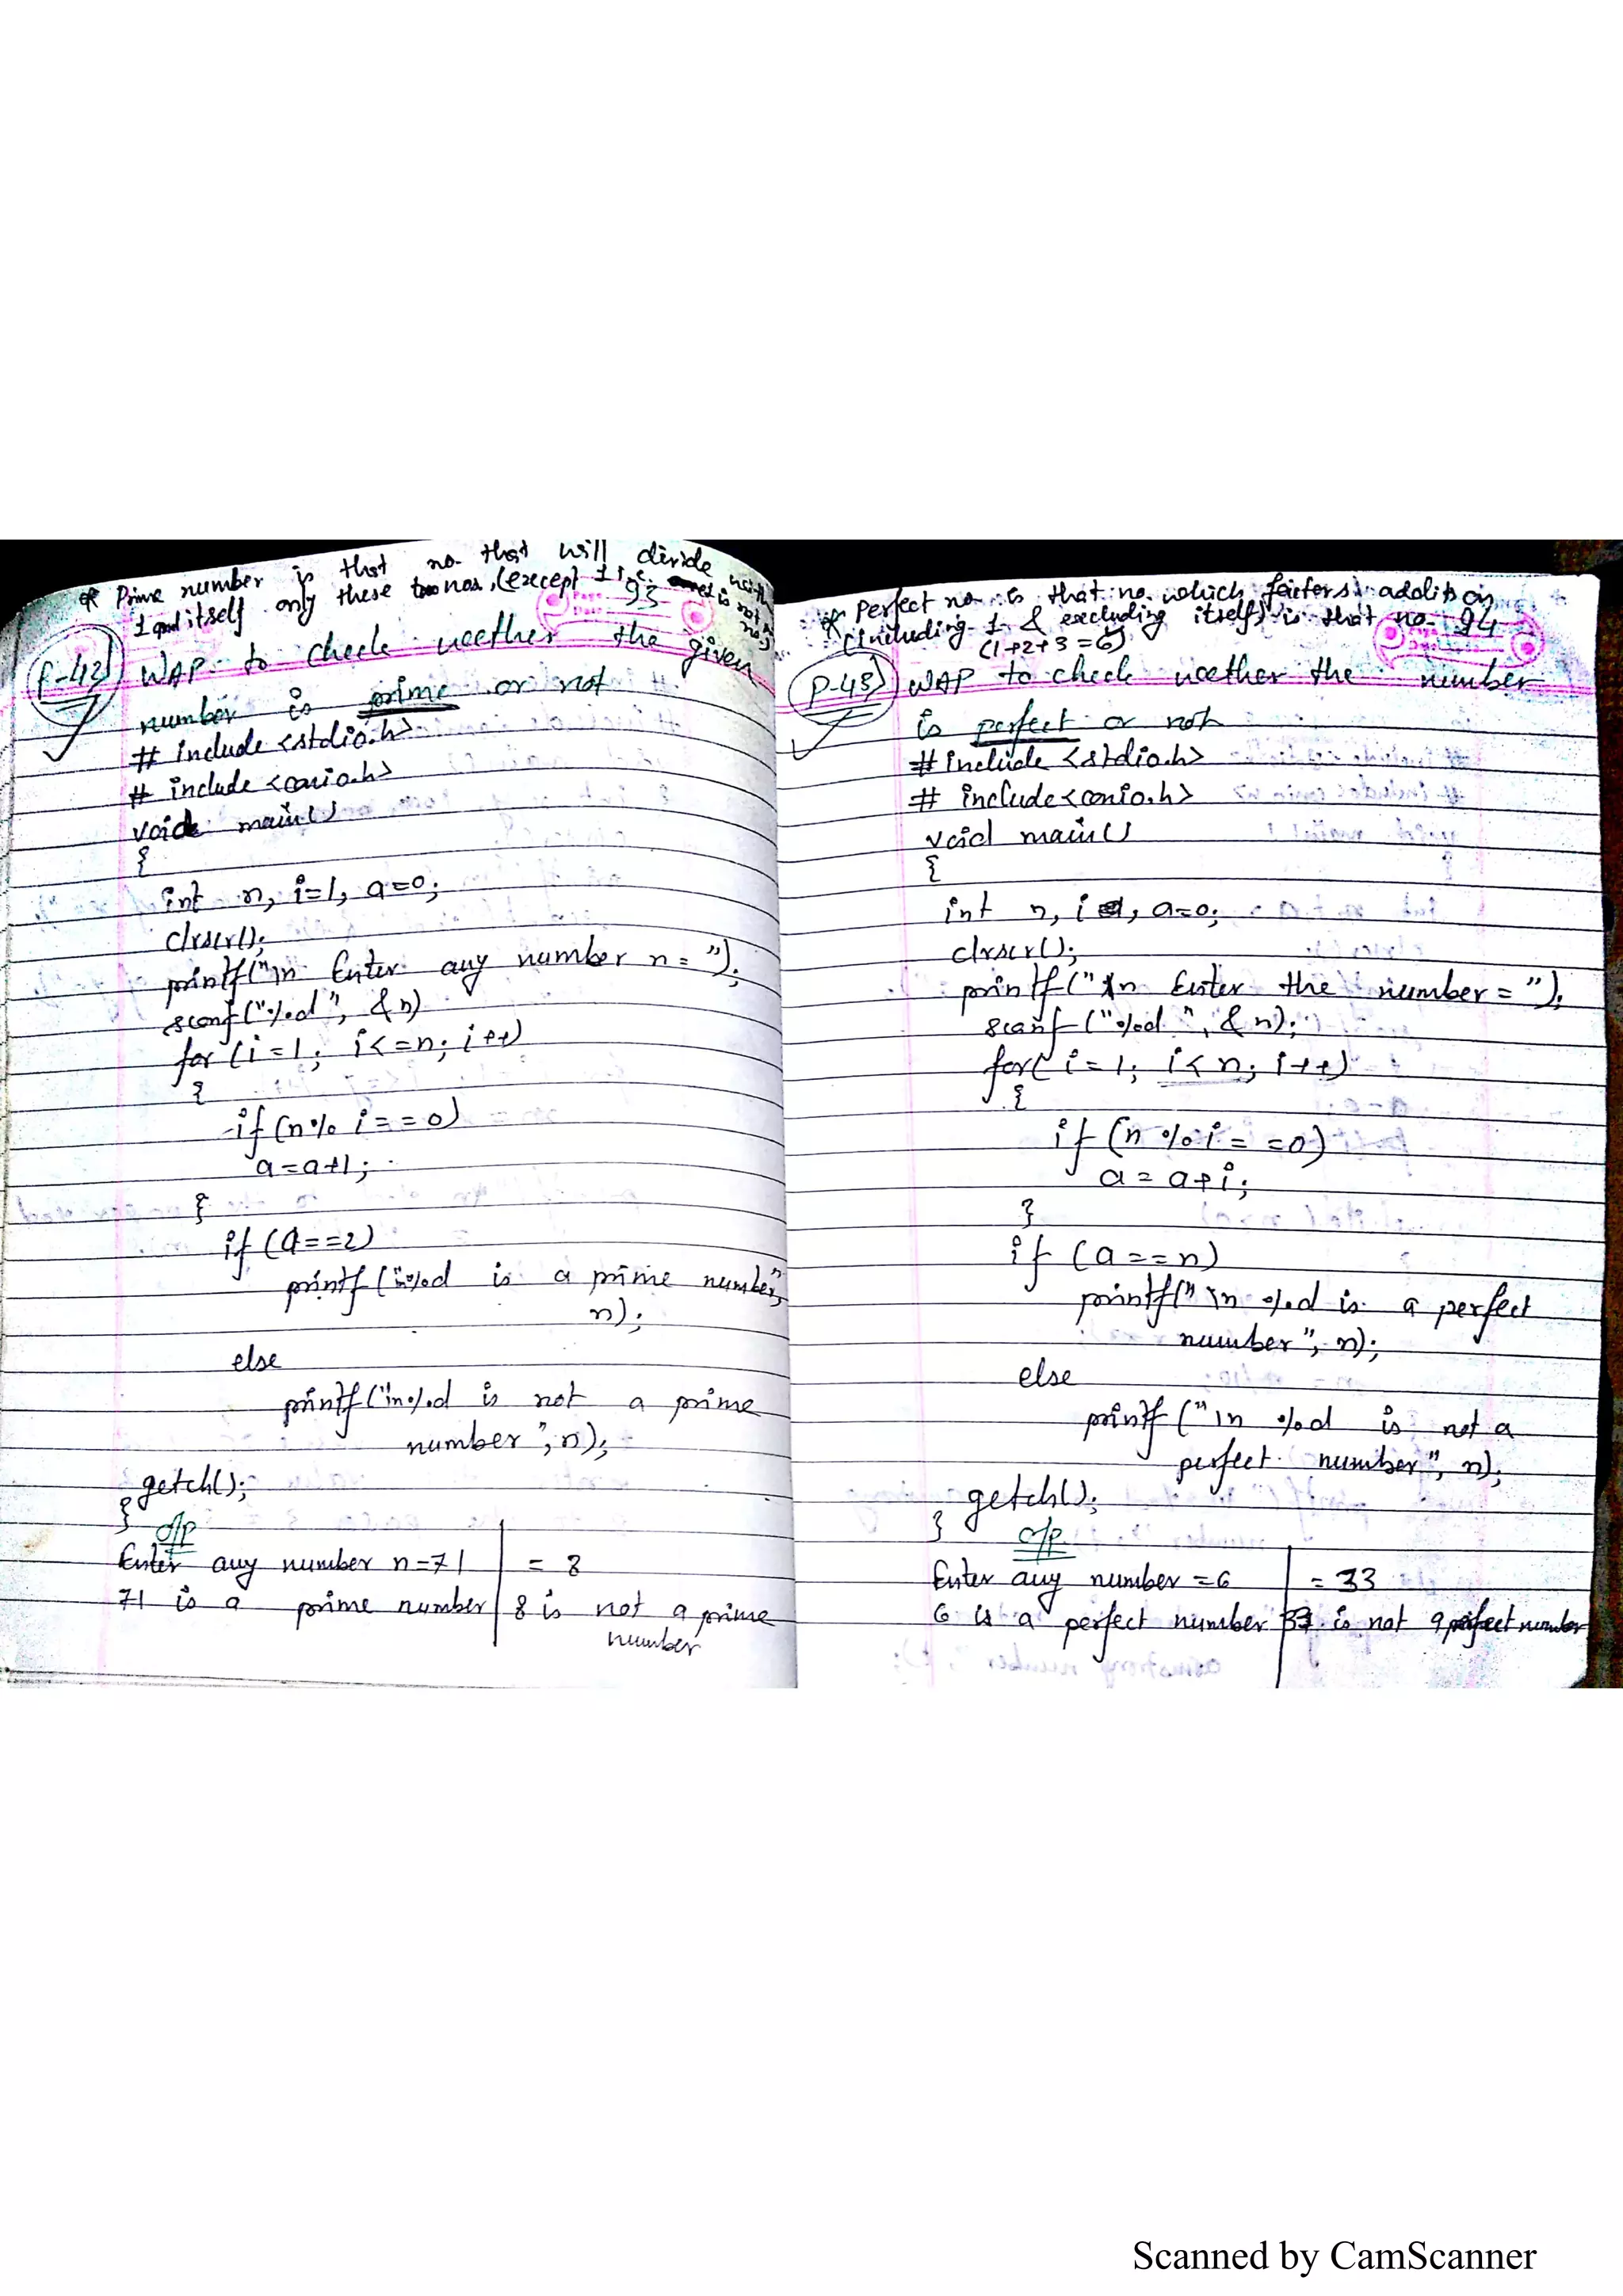 * Prime number is that no. that will divide with
1 and itself only these two nos, (except 1 i.e. is not
no.)
93
P-42) WAP to check weether the given
number is prime or not
# include <stdio.h>
# include <conio.h>
void main()
{
int n, i=1, a=0;
clrscr();
printf("\n Enter any number n= ");
scanf("%d", &n)
for (i=1; i<=n; i++)
{
if (n% i==0)
a=a+1;
}
if (a==2)
printf("\n%d is a prime number",
n);
else
printf("\n%d is not a prime
number", n);
getch();
}
o/p
Enter any number n=71 | = 8
71 is a prime number | 8 is not a prime
number
* Perfect no. is that no. which factors addition
(including 1 & excluding itself) is that no. 94
(1+2+3=6)
P-43) WAP to check weether the number
is perfect or not
# include <stdio.h>
# include <conio.h>
void main()
{
int n, i, a=0;
clrscr();
printf("\n Enter the number= ");
scanf("%d", &n);
for( i=1; i<n; i++)
{
if (n %i= =0)
a= a+i;
}
if (a==n)
printf("\n %d is a perfect
number", n);
else
printf("\n %d is not a
perfect number", n);
getch();
}
o/p
Enter any number =6 | = 33
6 is a perfect number 33 is not a perfect number
Scanned by CamScanner